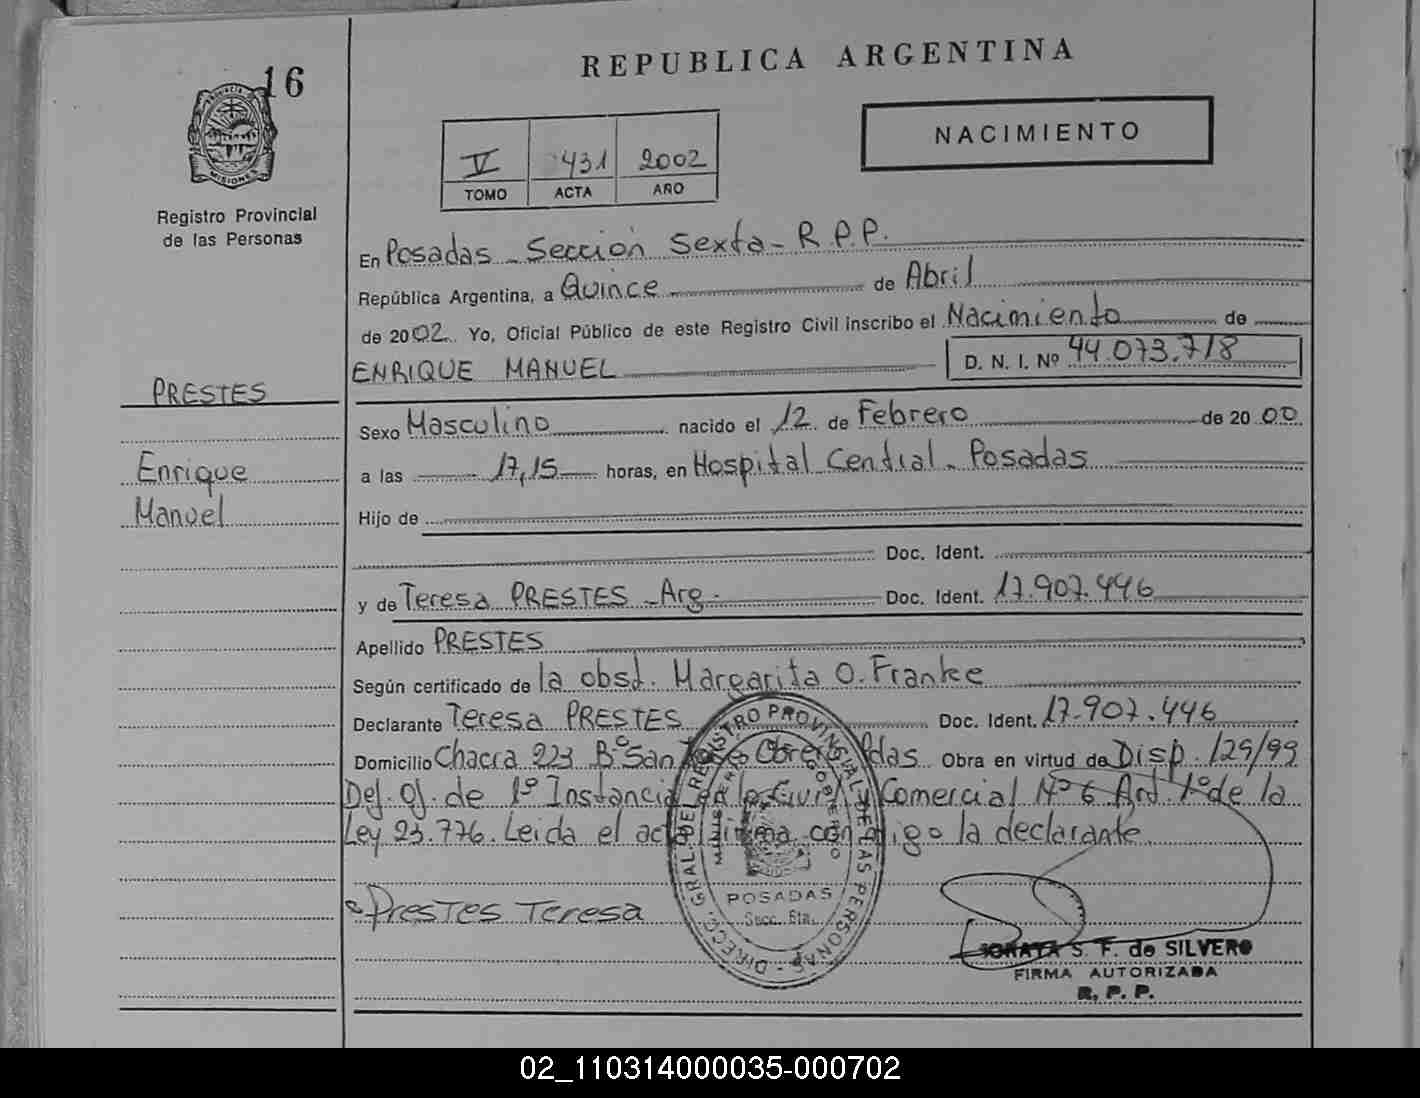 16
REPUBLICA ARGENTINA
NACIMIENTO
V 431 2002
TOMO ACTA AÑO
MISIONES
Registro Provincial
de las Personas
En Posadas - Sección Sexta - R.P.P.
República Argentina, a Quince de Abril
de 2002. Yo, Oficial Público de este Registro Civil inscribo el Nacimiento de
ENRIQUE MANUEL D. N. I. Nº 44.073.718
PRESTES
Enrique
Manuel
Sexo Masculino nacido el 12 de Febrero de 20 00
a las 17,15 horas, en Hospital Central - Posadas
Hijo de
Doc. Ident.
y de Teresa PRESTES - Arg. Doc. Ident. 17.907.446
Apellido PRESTES
Según certificado de la obst. Margarita O. Franke
Declarante Teresa PRESTES Doc. Ident. 17.907.446
Domicilio Chacra 223 Bº San Obrero Pdas Obra en virtud de Disp. 129/99
Def. Of. de 1º Instancia en lo Civil y Comercial Nº 6 Art. 1º de la
Ley 23.776. Leida el acta firma conmigo la declarante.
Prestes Teresa
DIRECC. GRAL. DEL REGISTRO PROVINSIAL DE LAS PERSONAS
MINISTERIO GOBIERNO
POSADAS
Secc. 6ta.
SORAYA S. F. de SILVERO
FIRMA AUTORIZADA
R. P. P.
02_110314000035-000702